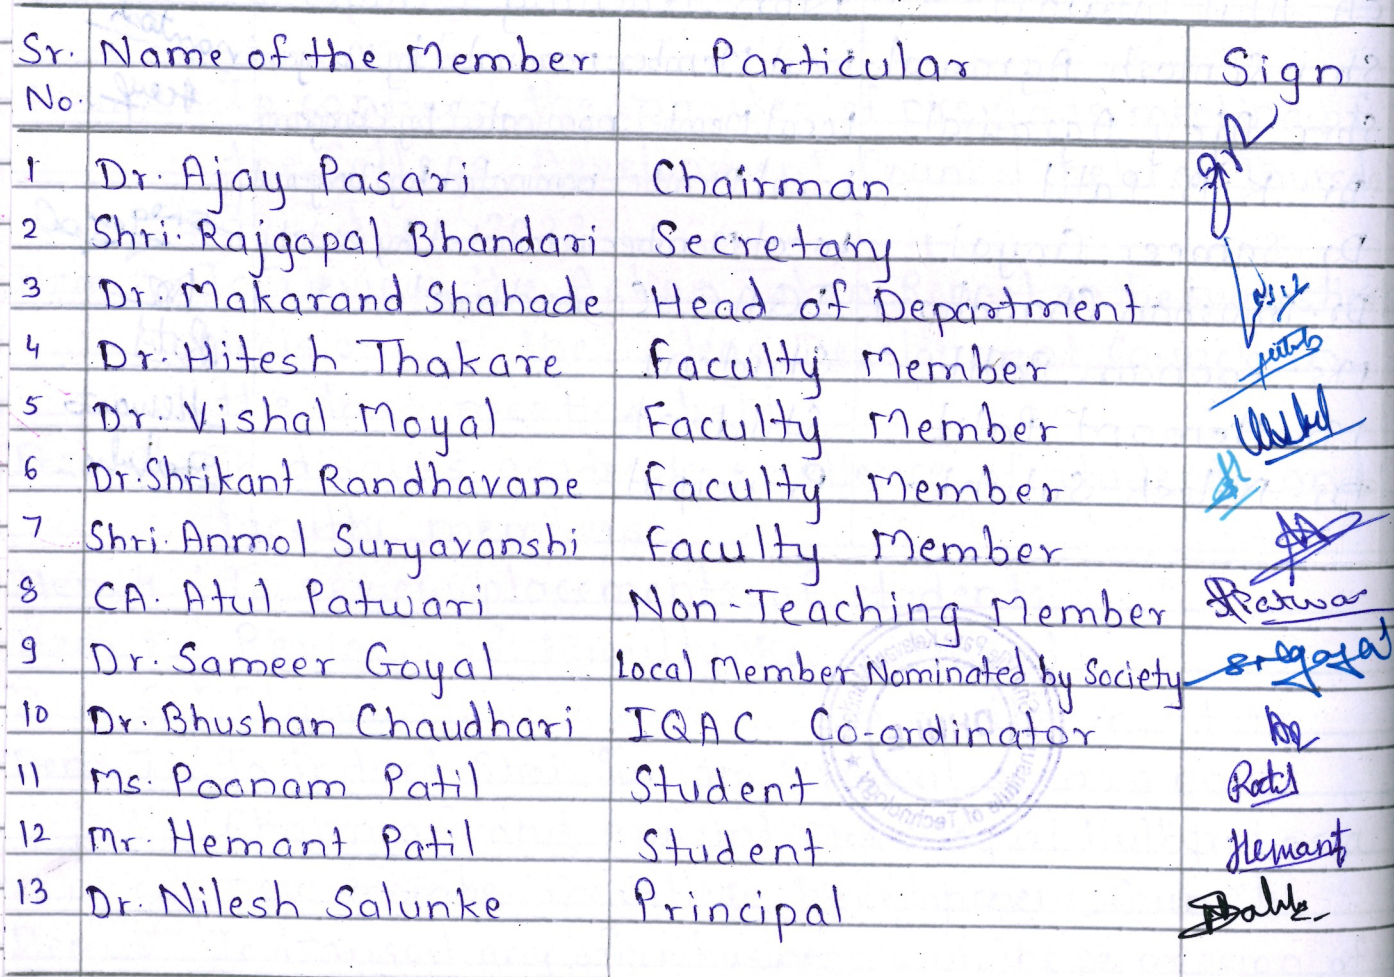 Sr. Name of the Member Particular Sign
No.
1 Dr. Ajay Pasari Chairman
2 Shri. Rajgopal Bhandari Secretary
3 Dr. Makarand Shahade Head of Department
4 Dr. Hitesh Thakare Faculty Member
5 Dr. Vishal Moyal Faculty Member
6 Dr. Shrikant Randhavane Faculty Member
7 Shri. Anmol Suryavanshi Faculty Member
8 CA. Atul Patwari Non-Teaching Member
9 Dr. Sameer Goyal Local Member Nominated by Society sregoyal
10 Dr. Bhushan Chaudhari IQAC Co-ordinator
11 Ms. Poonam Patil Student
12 Mr. Hemant Patil Student Hemant
13 Dr. Nilesh Salunke Principal